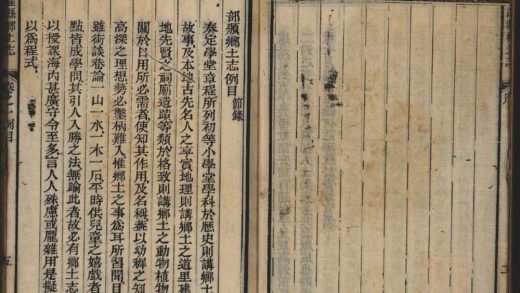 部頒鄉土志例目 節錄
奏定學堂章程所列初等小學堂學科於歷史則講鄉土
故事及本境古先名人之事實地理則講鄉土之道里建
地先賢之祠廟遺蹟等類於格致則講鄉土之動物植物
關於日用所必需者使知其作用及名稱蓋以幼穉之知
高深之理想勢必鑿枘難入惟鄉土之事爲耳所習聞目
雖街談巷論一山一水一木一石平時供兒童之嬉戲者
點皆成學問其引人入勝之法無踰此者故必有鄉土志
以授課海內甚廣守令至多言人人殊慮或龐雜用是擬
以爲程式
縣鄉土志 卷之一 例目 五